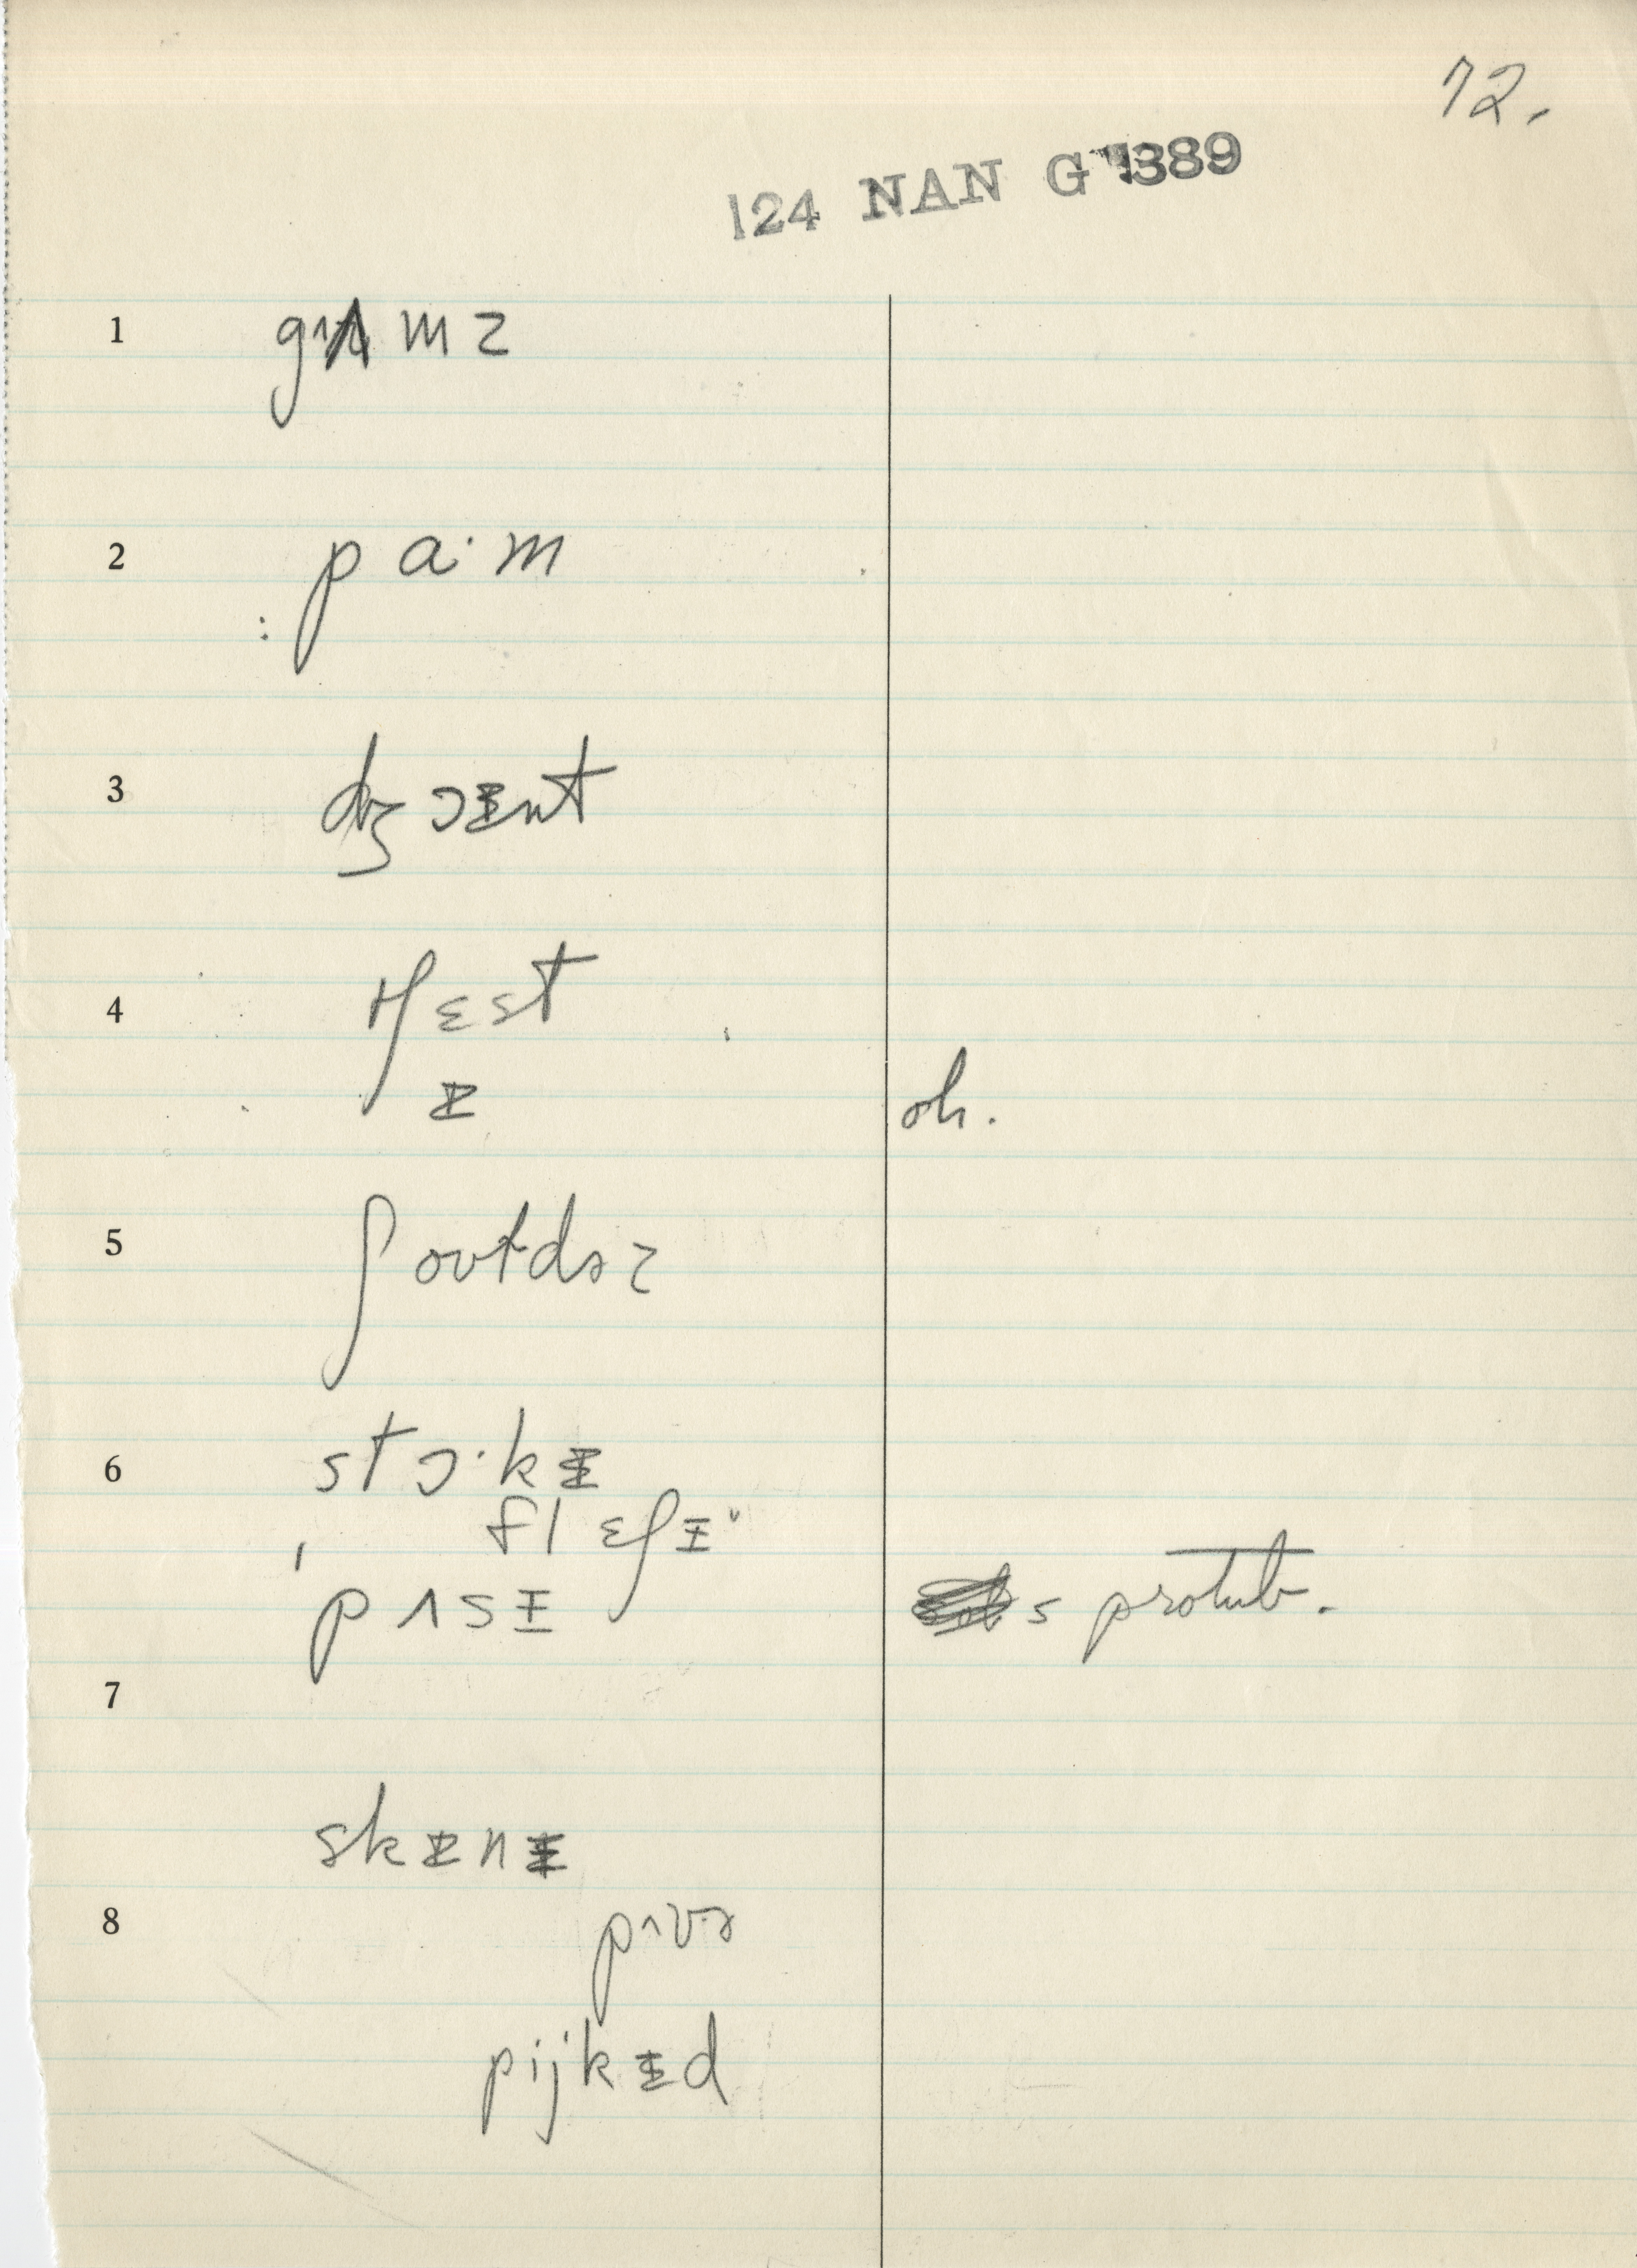 72.
124 NAN G 1389
1 gʌmz
2 pa·m
3 dʒɔɪnt
4 tʃɛst
ɪ oh.
5 ʃoʊldɚz
6 stɔ·kɪ
flɛʃɪ
pʌsɪ s protub.
7
skɪnɪ
8 pʌvɚ
pijkɪd